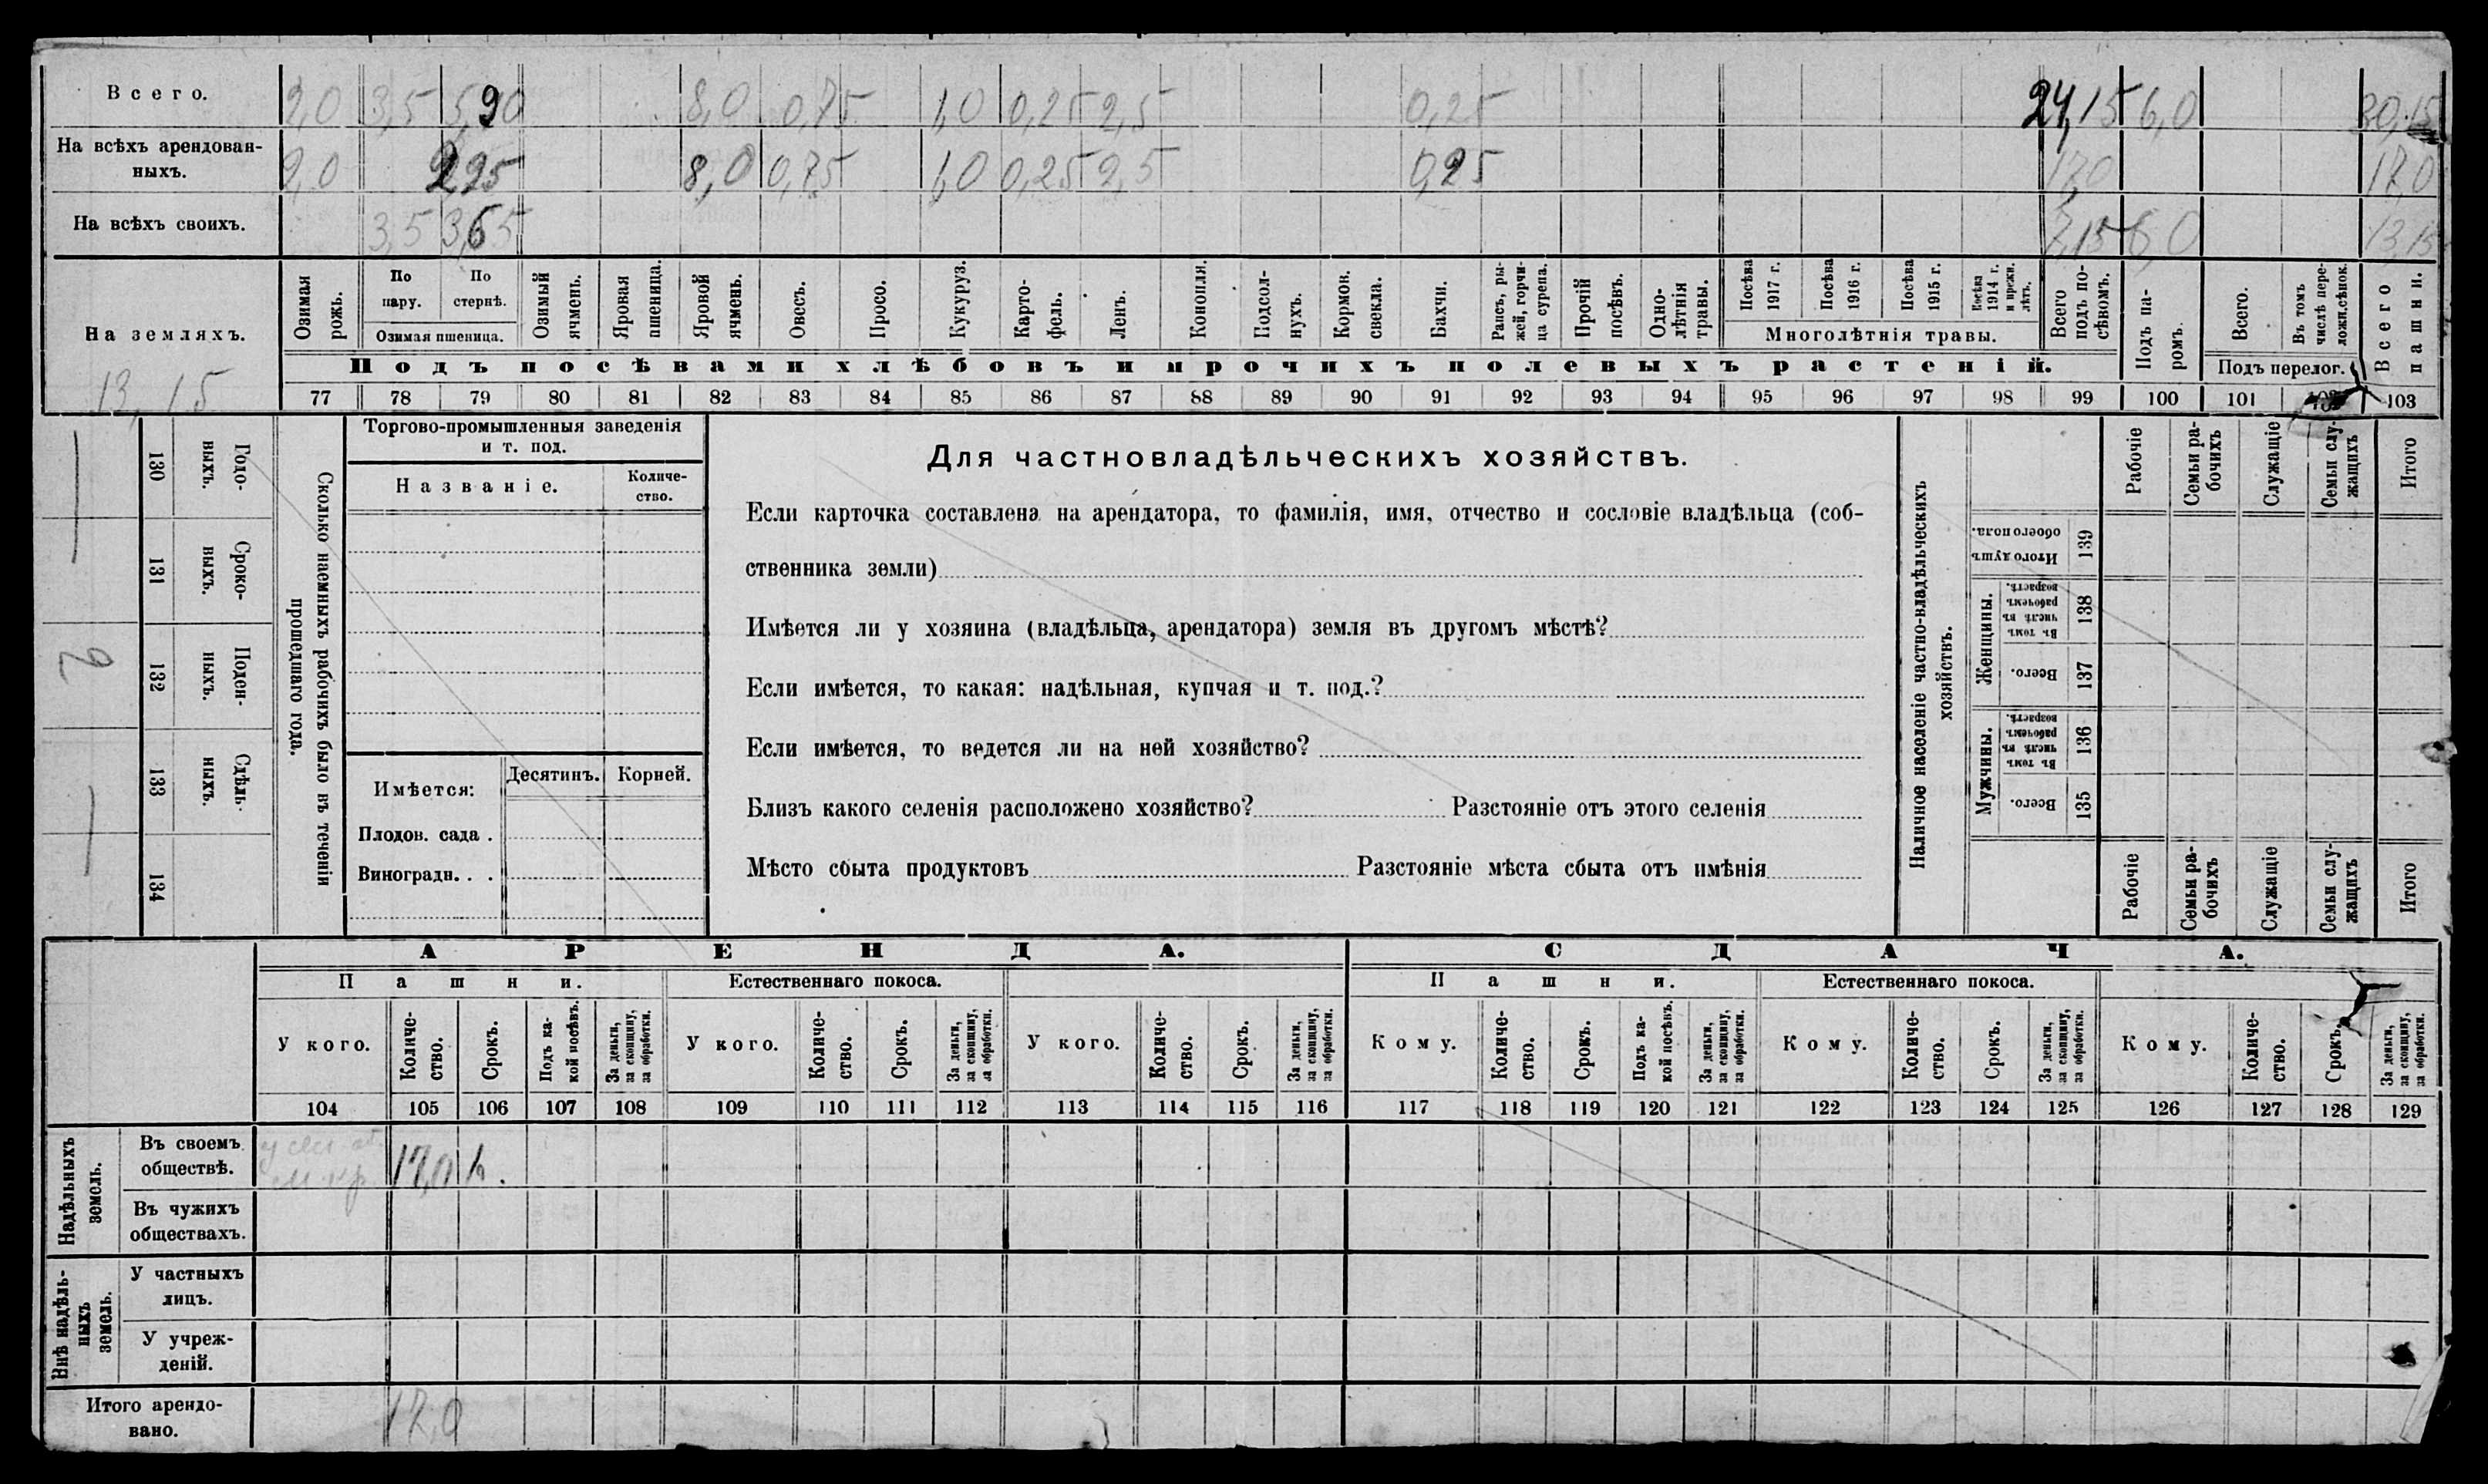 Всего. 2,0 3,5 5,90 8,0 0,75 1,0 0,25 2,5 0,25 24,15 6,0 30,15
На всѣхъ арендован-
ныхъ. 2,0 2,25 8,0 0,75 1,0 0,25 2,5 0,25 17,0 17,0
На всѣхъ своихъ. 3,5 3,65 7,15 6,0 13,15
На земляхъ.
13,15
Озимая рожь.
По пару.
По стернѣ.
Озимая пшеница.
Озимый ячмень.
Яровая пшеница.
Яровой ячмень.
Овесъ.
Просо.
Кукуруз.
Карто-
фель.
Ленъ.
Конопля.
Подсол-
нухъ.
Кормов. свекла.
Бахчи.
Рапсъ, ры-
жей, горчи-
ца сурепа.
Прочій посѣвъ.
Одно-
лѣтнія травы.
Посѣва 1917 г.
Посѣва 1916 г.
Посѣва 1915 г.
Посѣва 1914 г. и прежн. лѣтъ.
Многолѣтнія травы.
Всего подъ по-
сѣвомъ.
Подъ посѣвами хлѣбовъ и прочихъ полевыхъ растеній.
Подъ па-
ромъ.
Всего.
Въ томъ числѣ пере-
ложн.сѣнок.
Подъ перелог.
Всего пашни.
77 78 79 80 81 82 83 84 85 86 87 88 89 90 91 92 93 94 95 96 97 98 99 100 101 102 103
130 Годо-
ныхъ.
131 Сроко-
ныхъ.
132 Поден-
ныхъ. 2
133 Сдѣль-
ныхъ.
134
Сколько наемныхъ рабочихъ было въ теченіи
прошедшаго года.
Торгово-промышленныя заведенія
и т. под.
Названіе.
Количе-
ство.
Имѣется:
Десятинъ.
Корней.
Плодов. сада .
Виноградн. . .
Для частновладѣльческихъ хозяйствъ.
Если карточка составлена на арендатора, то фамилія, имя, отчество и сословіе владѣльца (соб-
ственника земли)
Имѣется ли у хозяина (владѣльца, арендатора) земля въ другомъ мѣстѣ?
Если имѣется, то какая: надѣльная, купчая и т. под.?
Если имѣется, то ведется ли на ней хозяйство?
Близъ какого селенія расположено хозяйство? Разстояніе отъ этого селенія
Мѣсто сбыта продуктовъ Разстояніе мѣста сбыта отъ имѣнія
Наличное населеніе частно-владѣльческихъ
хозяйствъ.
Рабочіе
Семьи ра-
бочихъ
Служащіе
Семьи слу-
жащихъ
Итого
Итого душъ обоего пола. 139
Женщины.
Въ томъ числѣ въ рабочемъ возрастѣ. 138
Всего. 137
Мужчины.
Въ томъ числѣ въ рабочемъ возрастѣ. 136
Всего. 135
Рабочіе
Семьи ра-
бочихъ
Служащіе
Семьи слу-
жащихъ
Итого
АРЕНДА.
СДАЧА.
Пашни.
Естественнаго покоса.
Пашни.
Естественнаго покоса.
У кого.
Количе-
ство.
Срокъ.
Подъ ка-
кой посѣвъ.
За деньги,
за скопщину,
за обработки.
У кого.
Количе-
ство.
Срокъ.
За деньги,
за скопщину,
за обработки.
У кого.
Количе-
ство.
Срокъ.
За деньги,
за скопщину,
за обработки.
Кому.
Количе-
ство.
Срокъ.
Подъ ка-
кой посѣвъ.
За деньги,
за скопщину,
за обработки.
Кому.
Количе-
ство.
Срокъ.
За деньги,
за скопщину,
за обработки.
Кому.
Количе-
ство.
Срокъ.
За деньги,
за скопщину,
за обработки.
104 105 106 107 108 109 110 111 112 113 114 115 116 117 118 119 120 121 122 123 124 125 126 127 128 129
Надѣльныхъ
земель.
Въ своемъ
обществѣ. 17,0
Въ чужихъ
обществахъ.
Внѣ надѣль-
ныхъ
земель.
У частныхъ
лицъ.
У учреж-
деній.
Итого арендо-
вано. 17,0